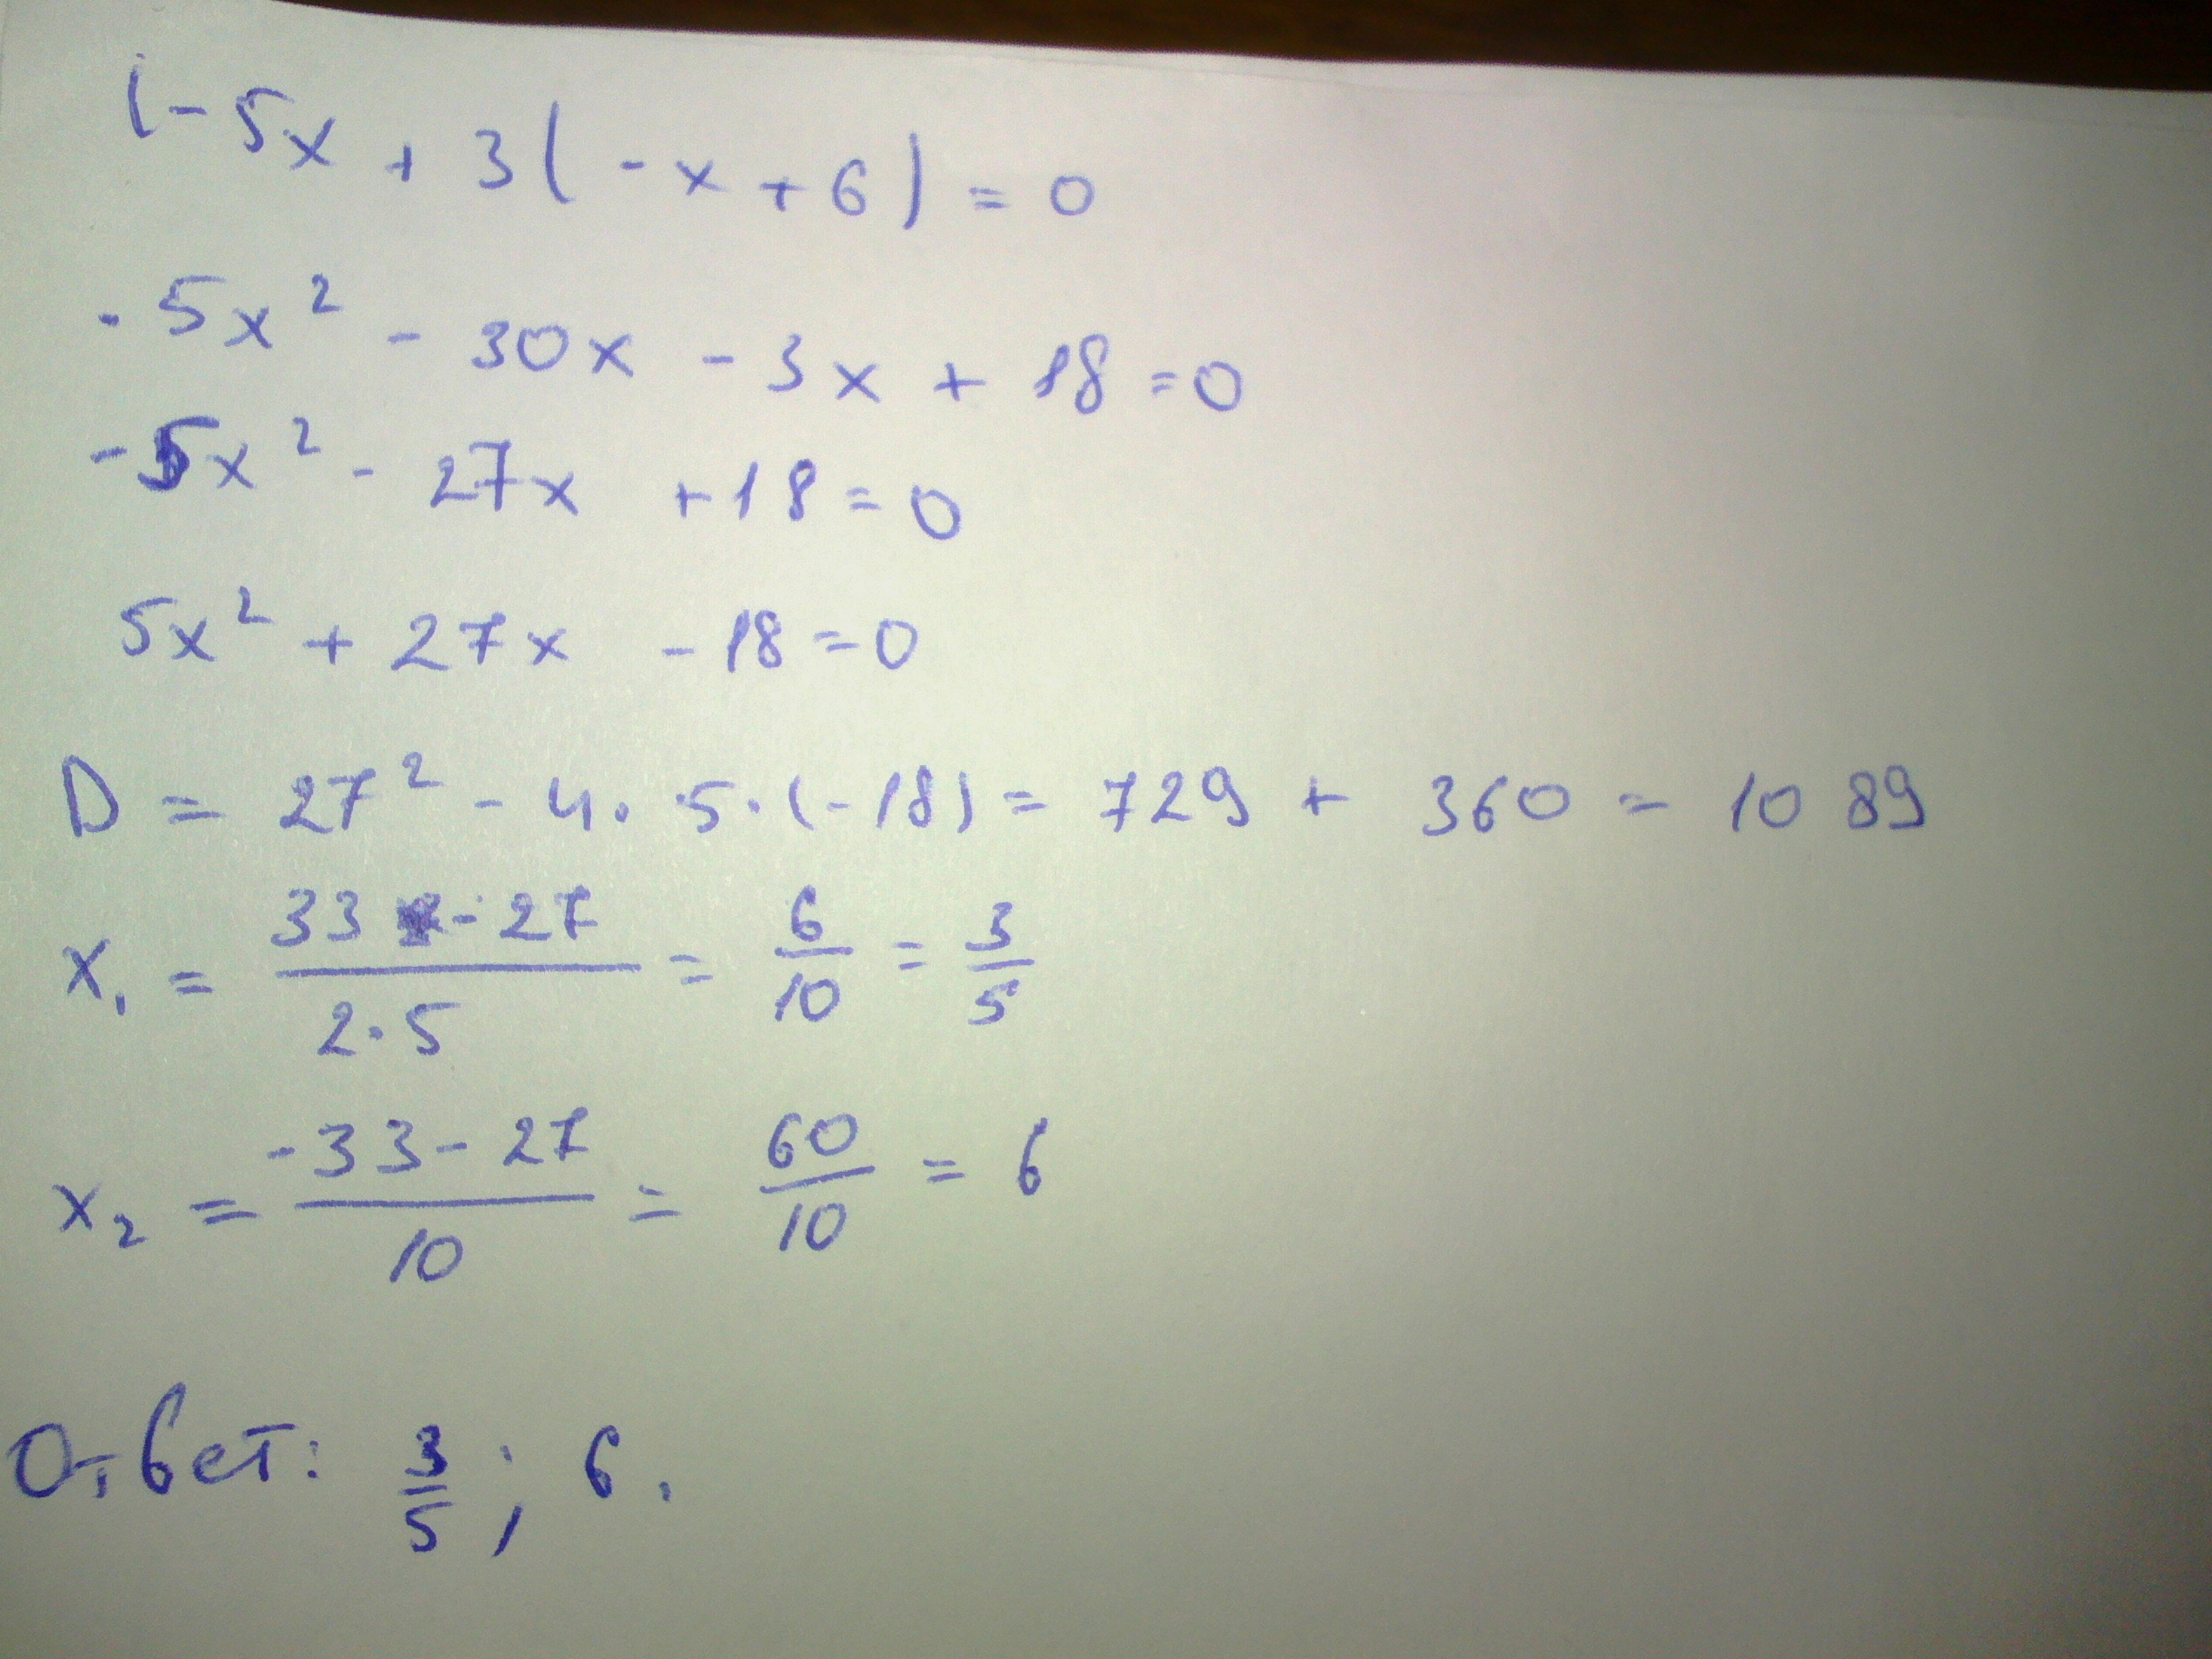 (-5x + 3(-x+6) = 0
-5x² - 30x - 3x + 18 = 0
-5x² - 27x + 18 = 0
5x² + 27x - 18 = 0
D = 27² - 4 · 5 · (-18) = 729 + 360 = 1089
x₁ = (33 - 27)/(2·5) = 6/10 = 3/5
x₂ = (-33 - 27)/10 = 60/10 = 6
Ответ: 3/5 ; 6.